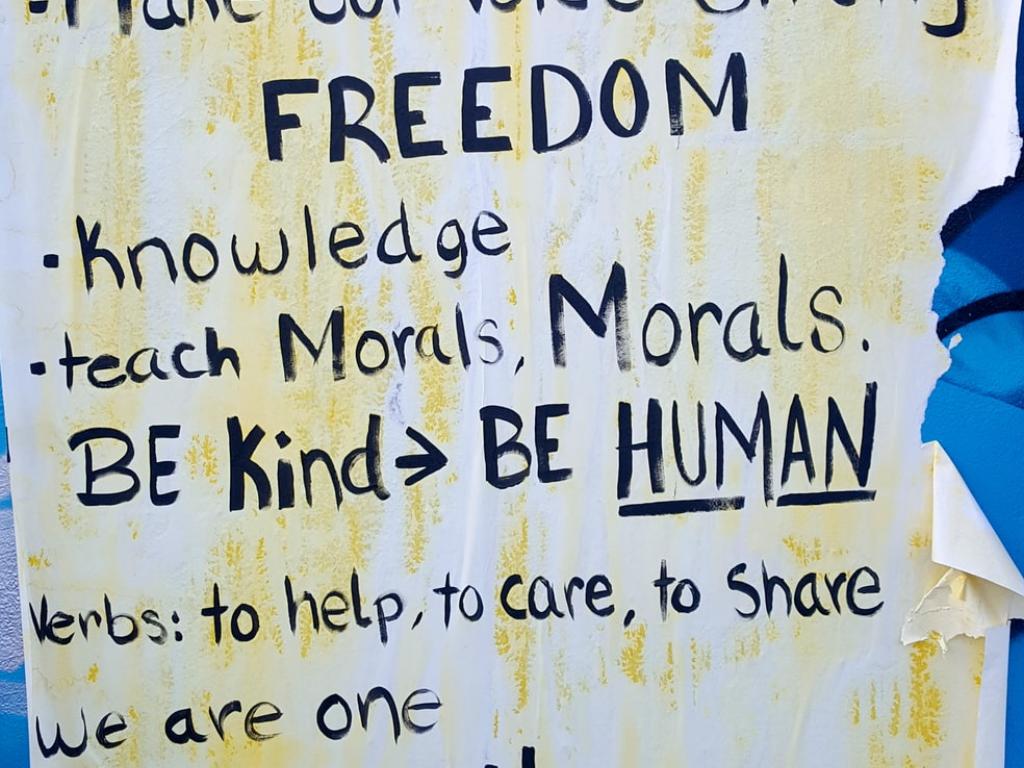 · Make our voice strong
FREEDOM
· Knowledge
· teach Morals, Morals.
BE Kind → BE HUMAN
Verbs: to help, to care, to Share
we are one